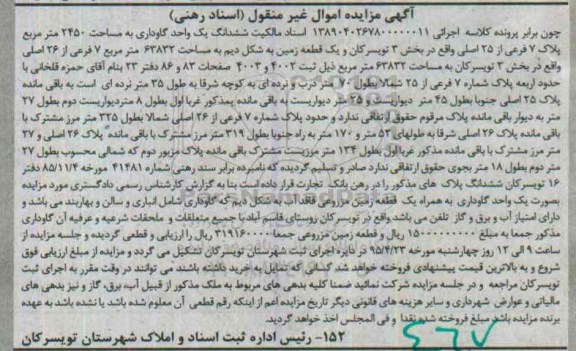 آگهی مزایده اموال غیر منقول (اسناد رهنی)
چون برابر پرونده کلاسه اجرائی ۱۳۸۹۰۴۰۲۶۷۸۰۰۰۰۰۰۱۱ اسناد مالکیت ششدانگ یک واحد گاوداری به مساحت ۲۴۵۰ متر مربع
پلاک ۷ فرعی از ۲۵ اصلی واقع در بخش ۳ تویسرکان و یک قطعه زمین به شکل دیم به مساحت ۶۳۸۳۲ متر مربع ۷ فرعی از ۲۶ اصلی
واقع در بخش ۳ تویسرکان به مساحت ۶۳۸۳۲ متر مربع ذیل ثبت ۴۰۰۲ و ۴۰۰۳ صفحات ۸۳ و ۸۶ دفتر ۲۳ بنام آقای حمزه قلخانی با
حدود اربعه پلاک شماره ۷ فرعی از ۲۵ شمالا بطول ۷۰ متر درب و نرده ای به کوچه شرقا به طول ۳۵ متر نرده ای است به باقی مانده
پلاک ۲۵ اصلی جنوبا بطول ۴۵ متر دیواریست و ۲۵ متر دیواریست به باقی مانده پمذکور غربا اول بطول ۸ متردیواریست دوم بطول ۲۷
متر به دیوار باقی مانده پلاک مرقوم حقوق ارتفاقی ندارد و حدود پلاک شماره ۷ فرعی از ۲۶ اصلی شمالا بطول ۳۲۵ متر مرز مشترک با
باقی مانده پلاک ۲۶ اصلی شرقا به طولهای ۵۳ متر و ۱۷۰ متر به راه جنوبا بطول ۳۱۹ متر مرز مشترک با باقی مانده پلاک ۲۶ اصلی و ۲۷
متر مرز مشترک با باقی مانده مذکور غربا اول بطول ۱۳۴ متر مرزیست مشترک باقی مانده پلاک مزبور دوم که شمالی محسوب بطول ۲۷
متر دوم بطول ۱۸ متر بجوی حقوق ارتفاقی ندارد صادر و تسلیم گردیده که نامبرده برابر سند رهنی شماره ۴۱۴۸۱ مورخه ۸۵/۱۱/۴ دفتر
۱۶ تویسرکان ششدانگ پلاک های مذکور را در رهن بانک تجارت قرار داده است بنا به گزارش کارشناس رسمی دادگستری مورد مزایده
بصورت یک واحد گاوداری به همراه یک قطعه زمین مزروعی فاقد آب به شکل دیم که گاوداری شامل انباری و سالن و بهاربند می باشد و
دارای امتیاز آب و برق و گاز تلفن می باشد واقع در تویسرکان روستای قاسم آباد با جمیع متعلقات و ملحقات شرعیه و عرفیه آن گاوداری
مذکور جمعا به مبلغ ۱۵۰۰۰۰۰۰۰۰ ریال و قطعه زمین مزروعی جمعا ۳۱۹۱۶۰۰۰۰ ریال را ارزیابی و قطعی گردیده و جلسه مزایده از
ساعت ۹ الی ۱۲ روز چهارشنبه مورخه ۹۵/۴/۲۳ در دایره اجرای ثبت شهرستان تویسرکان تشکیل می گردد و مزایده از مبلغ ارزیابی فوق
شروع و به بالاترین قیمت پیشنهادی فروخته خواهد شد کسانی که تمایل به خرید داشته باشند می توانند در وقت مقرر به اجرای ثبت
تویسرکان مراجعه و در جلسه مزایده شرکت نمائید ضمنا کلیه بدهی های مربوط به ملک مذکور از قبیل آب برق، گاز و نیز بدهی های
مالیاتی و عوارض شهرداری و سایر هزینه های قانونی دیگر تاریخ مزایده اعم از اینکه رقم قطعی آن معلوم شده باشد یا نشده باشد به عهده
برنده مزایده باشد مبلغ فروخته شده نقدا و فی المجلس اخذ خواهد گردید.
۱۵۲- رئیس اداره ثبت اسناد و املاک شهرستان تویسرکان